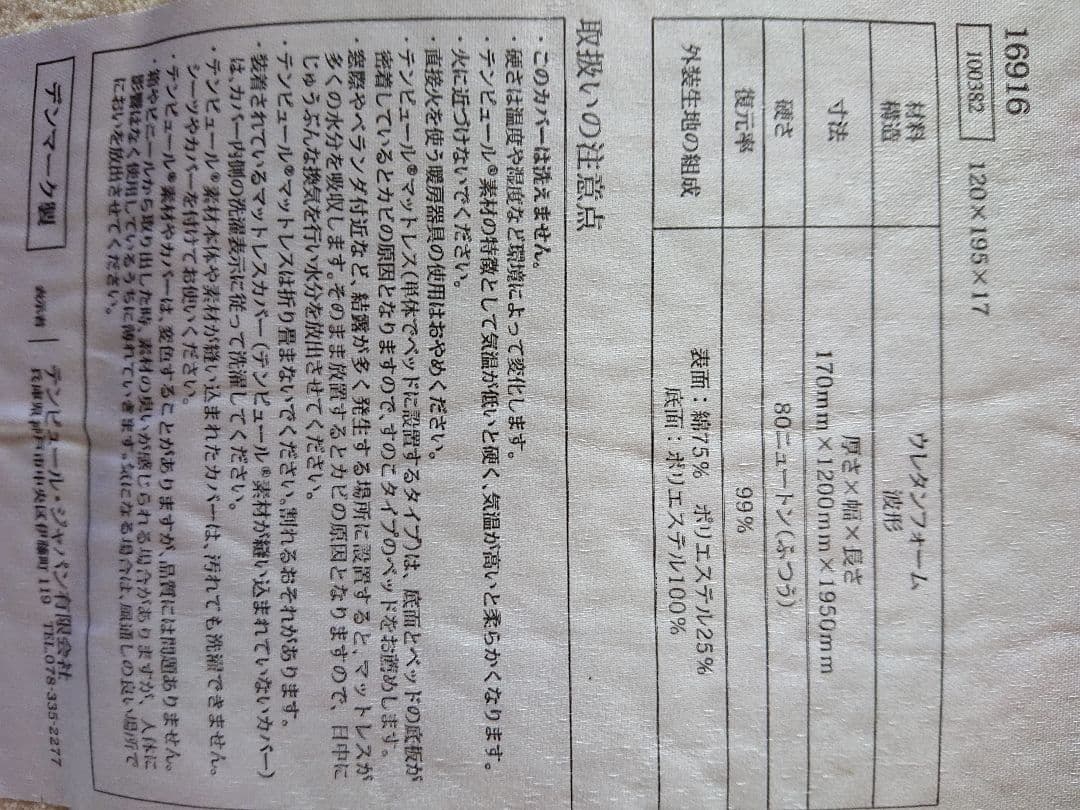 16916
100382 120×195×17
材料 ウレタンフォーム
構造 波形
寸法 厚さ×幅×長さ
170mm×1200mm×1950mm
硬さ 80ニュートン(ふつう)
復元率 99%
外装生地の組成 表面:綿75% ポリエステル25%
底面:ポリエステル100%
取扱いの注意点
・このカバーは洗えません。
・硬さは温度や湿度など環境によって変化します。
・テンピュール®素材の特徴として気温が低いと硬く、気温が高いと柔らかくなります。
・火に近づけないでください。
・直接火を使う暖房器具の使用はおやめください。
・テンピュール®マットレス(単体でベッドに設置するタイプ)は、底面とベッドの底板が
密着しているとカビの原因となりますので、すのこタイプのベッドをお薦めします。
・窓際やベランダ付近など、結露が多く発生する場所に設置すると、マットレスが
多くの水分を吸収します。そのまま放置するとカビの原因となりますので、日中に
じゅうぶんな換気を行い水分を放出させてください。
・テンピュール®マットレスは折り畳まないでください。割れるおそれがあります。
・装着されているマットレスカバー(テンピュール®素材が縫い込まれていないカバー)
は、カバー内側の洗濯表示に従って洗濯してください。
・テンピュール®素材本体や素材が縫い込まれたカバーは、汚れても洗濯できません。
シーツやカバーを付けてお使いください。
・テンピュール®素材やカバーは、変色することがありますが、品質には問題ありません。
・箱やビニールから取り出した時、素材の臭いが感じられる場合がありますが、人体に
影響はなく使用しているうちに薄れていきます。気になる場合は、風通しの良い場所で
においを放出させてください。
デンマーク製 表示者 テンピュール・ジャパン有限会社
兵庫県神戸市中央区伊藤町119 TEL.078-335-2277